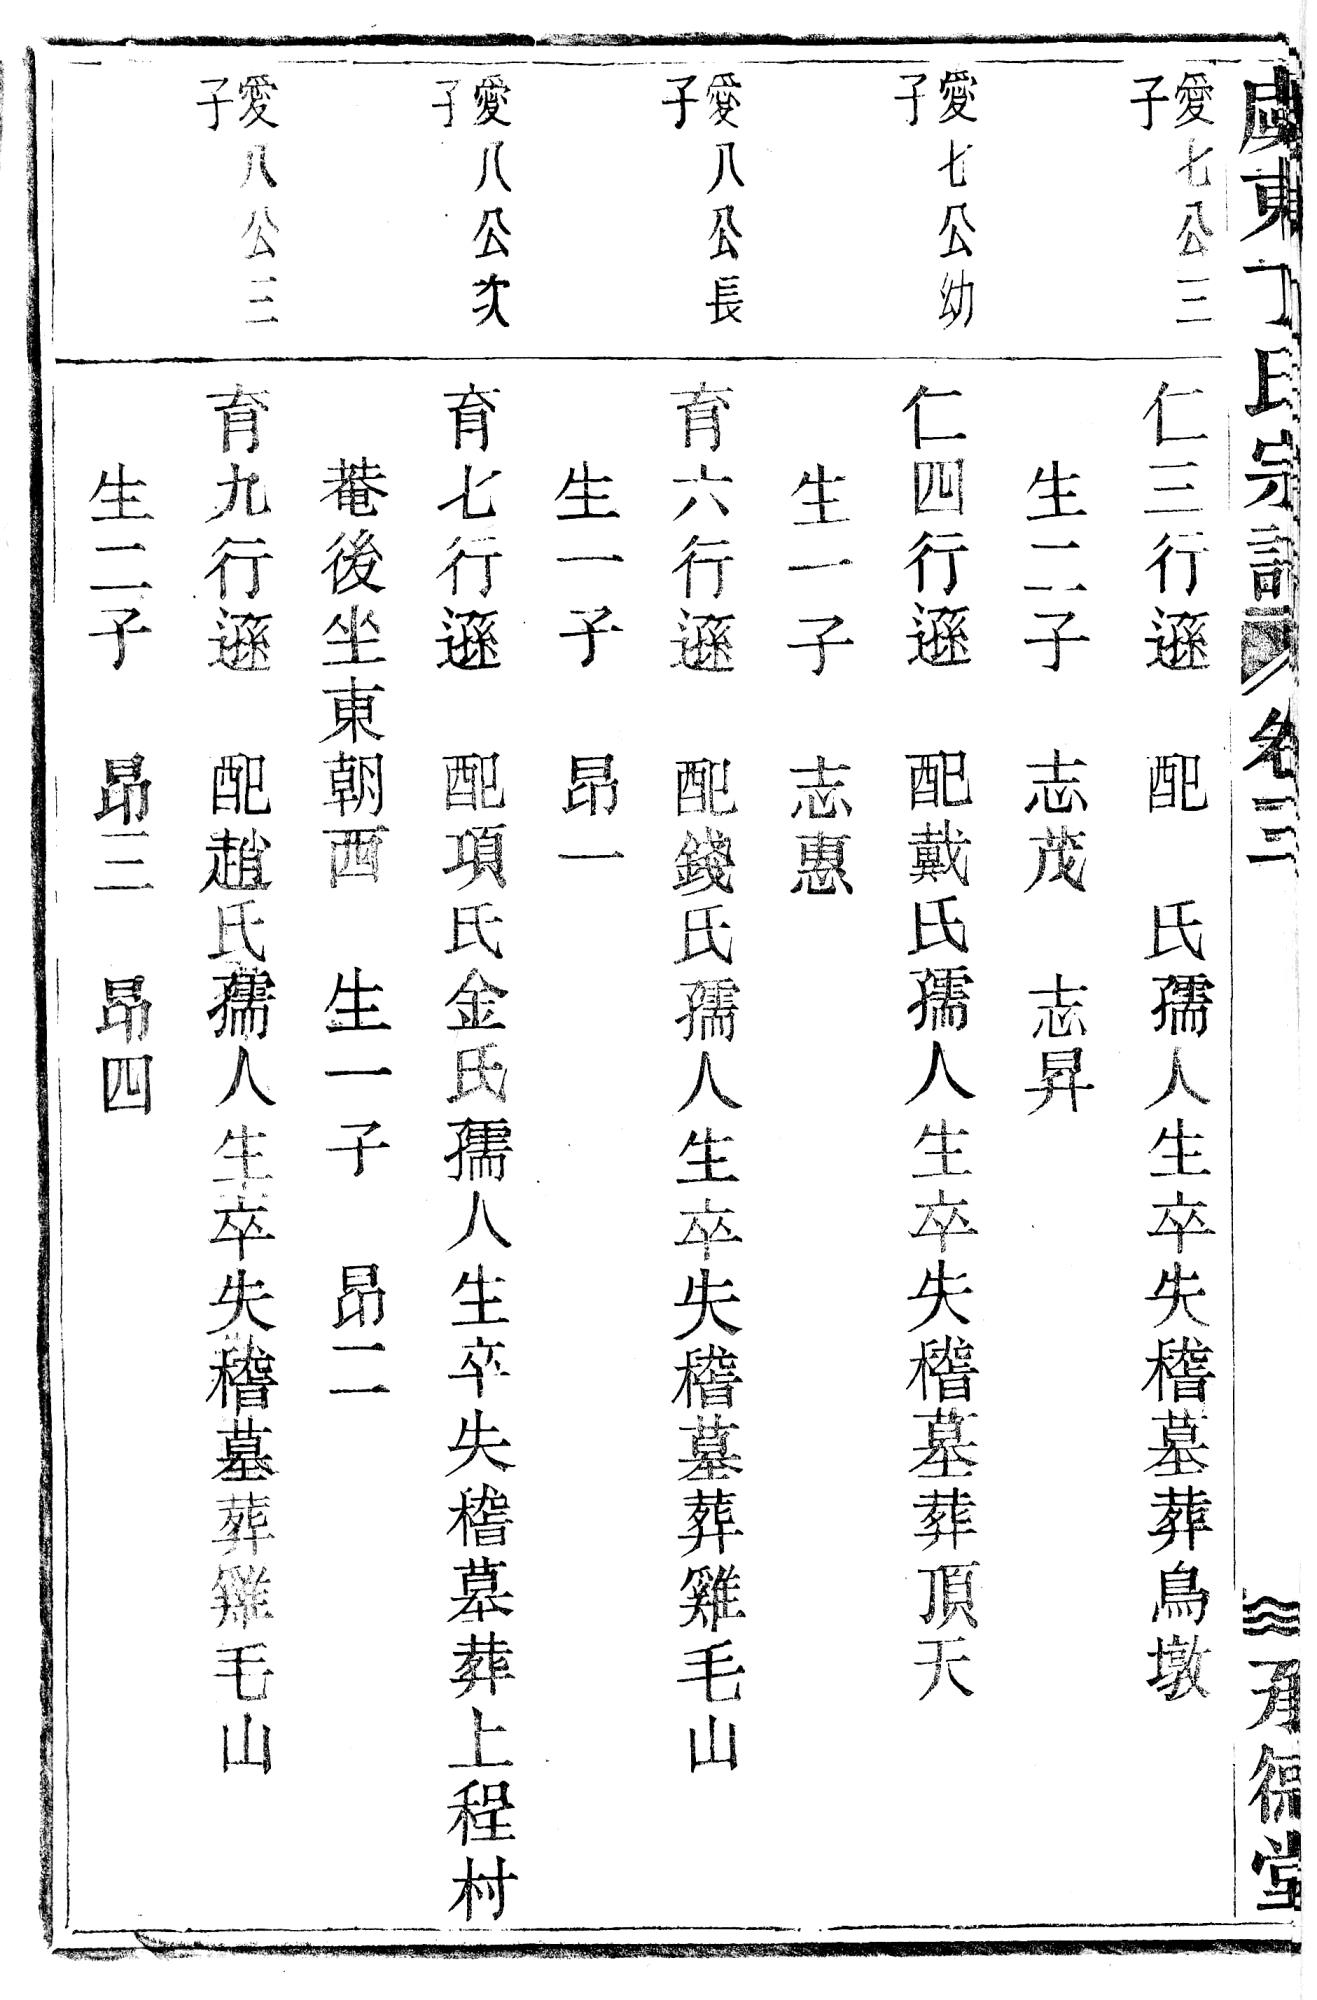 東丁氏宗譜 卷三 承德堂
愛七公三子
仁三行遜 配 氏孺人生卒失稽墓葬鳥墩
生二子 志茂 志昇
愛七公幼子
仁四行遜 配戴氏孺人生卒失稽墓葬頂天
生一子 志惠
愛八公長子
育六行遜 配錢氏孺人生卒失稽墓葬雞毛山
生一子 昂一
愛八公次子
育七行遜 配項氏金氏孺人生卒失稽墓葬上程村
菴後坐東朝酉 生一子 昂二
愛八公三子
育九行遜 配趙氏孺人生卒失稽墓葬雞毛山
生二子 昂三 昂四